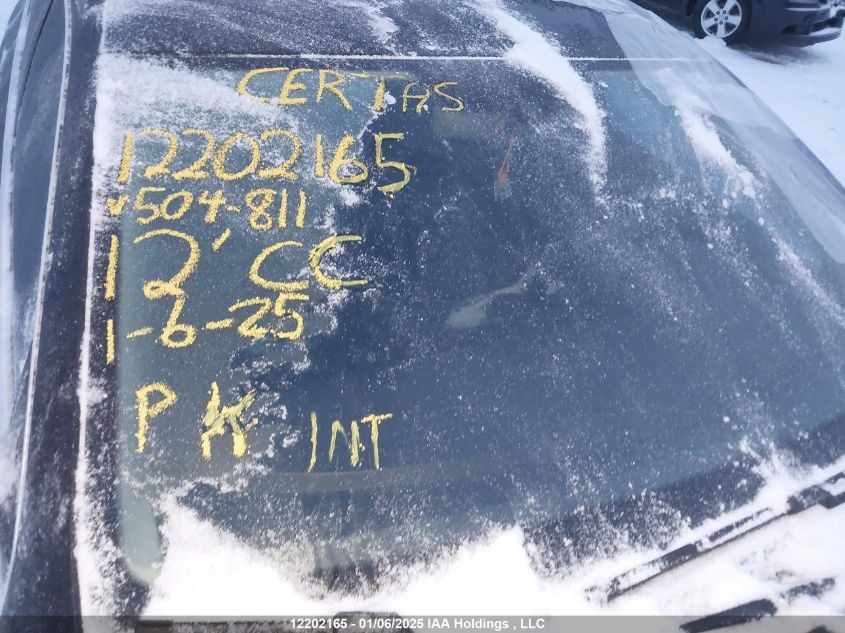 CERTAS
12202165
V504-811
12' CC
1-6-25
P K INT
12202165 - 01/06/2025 IAA Holdings , LLC